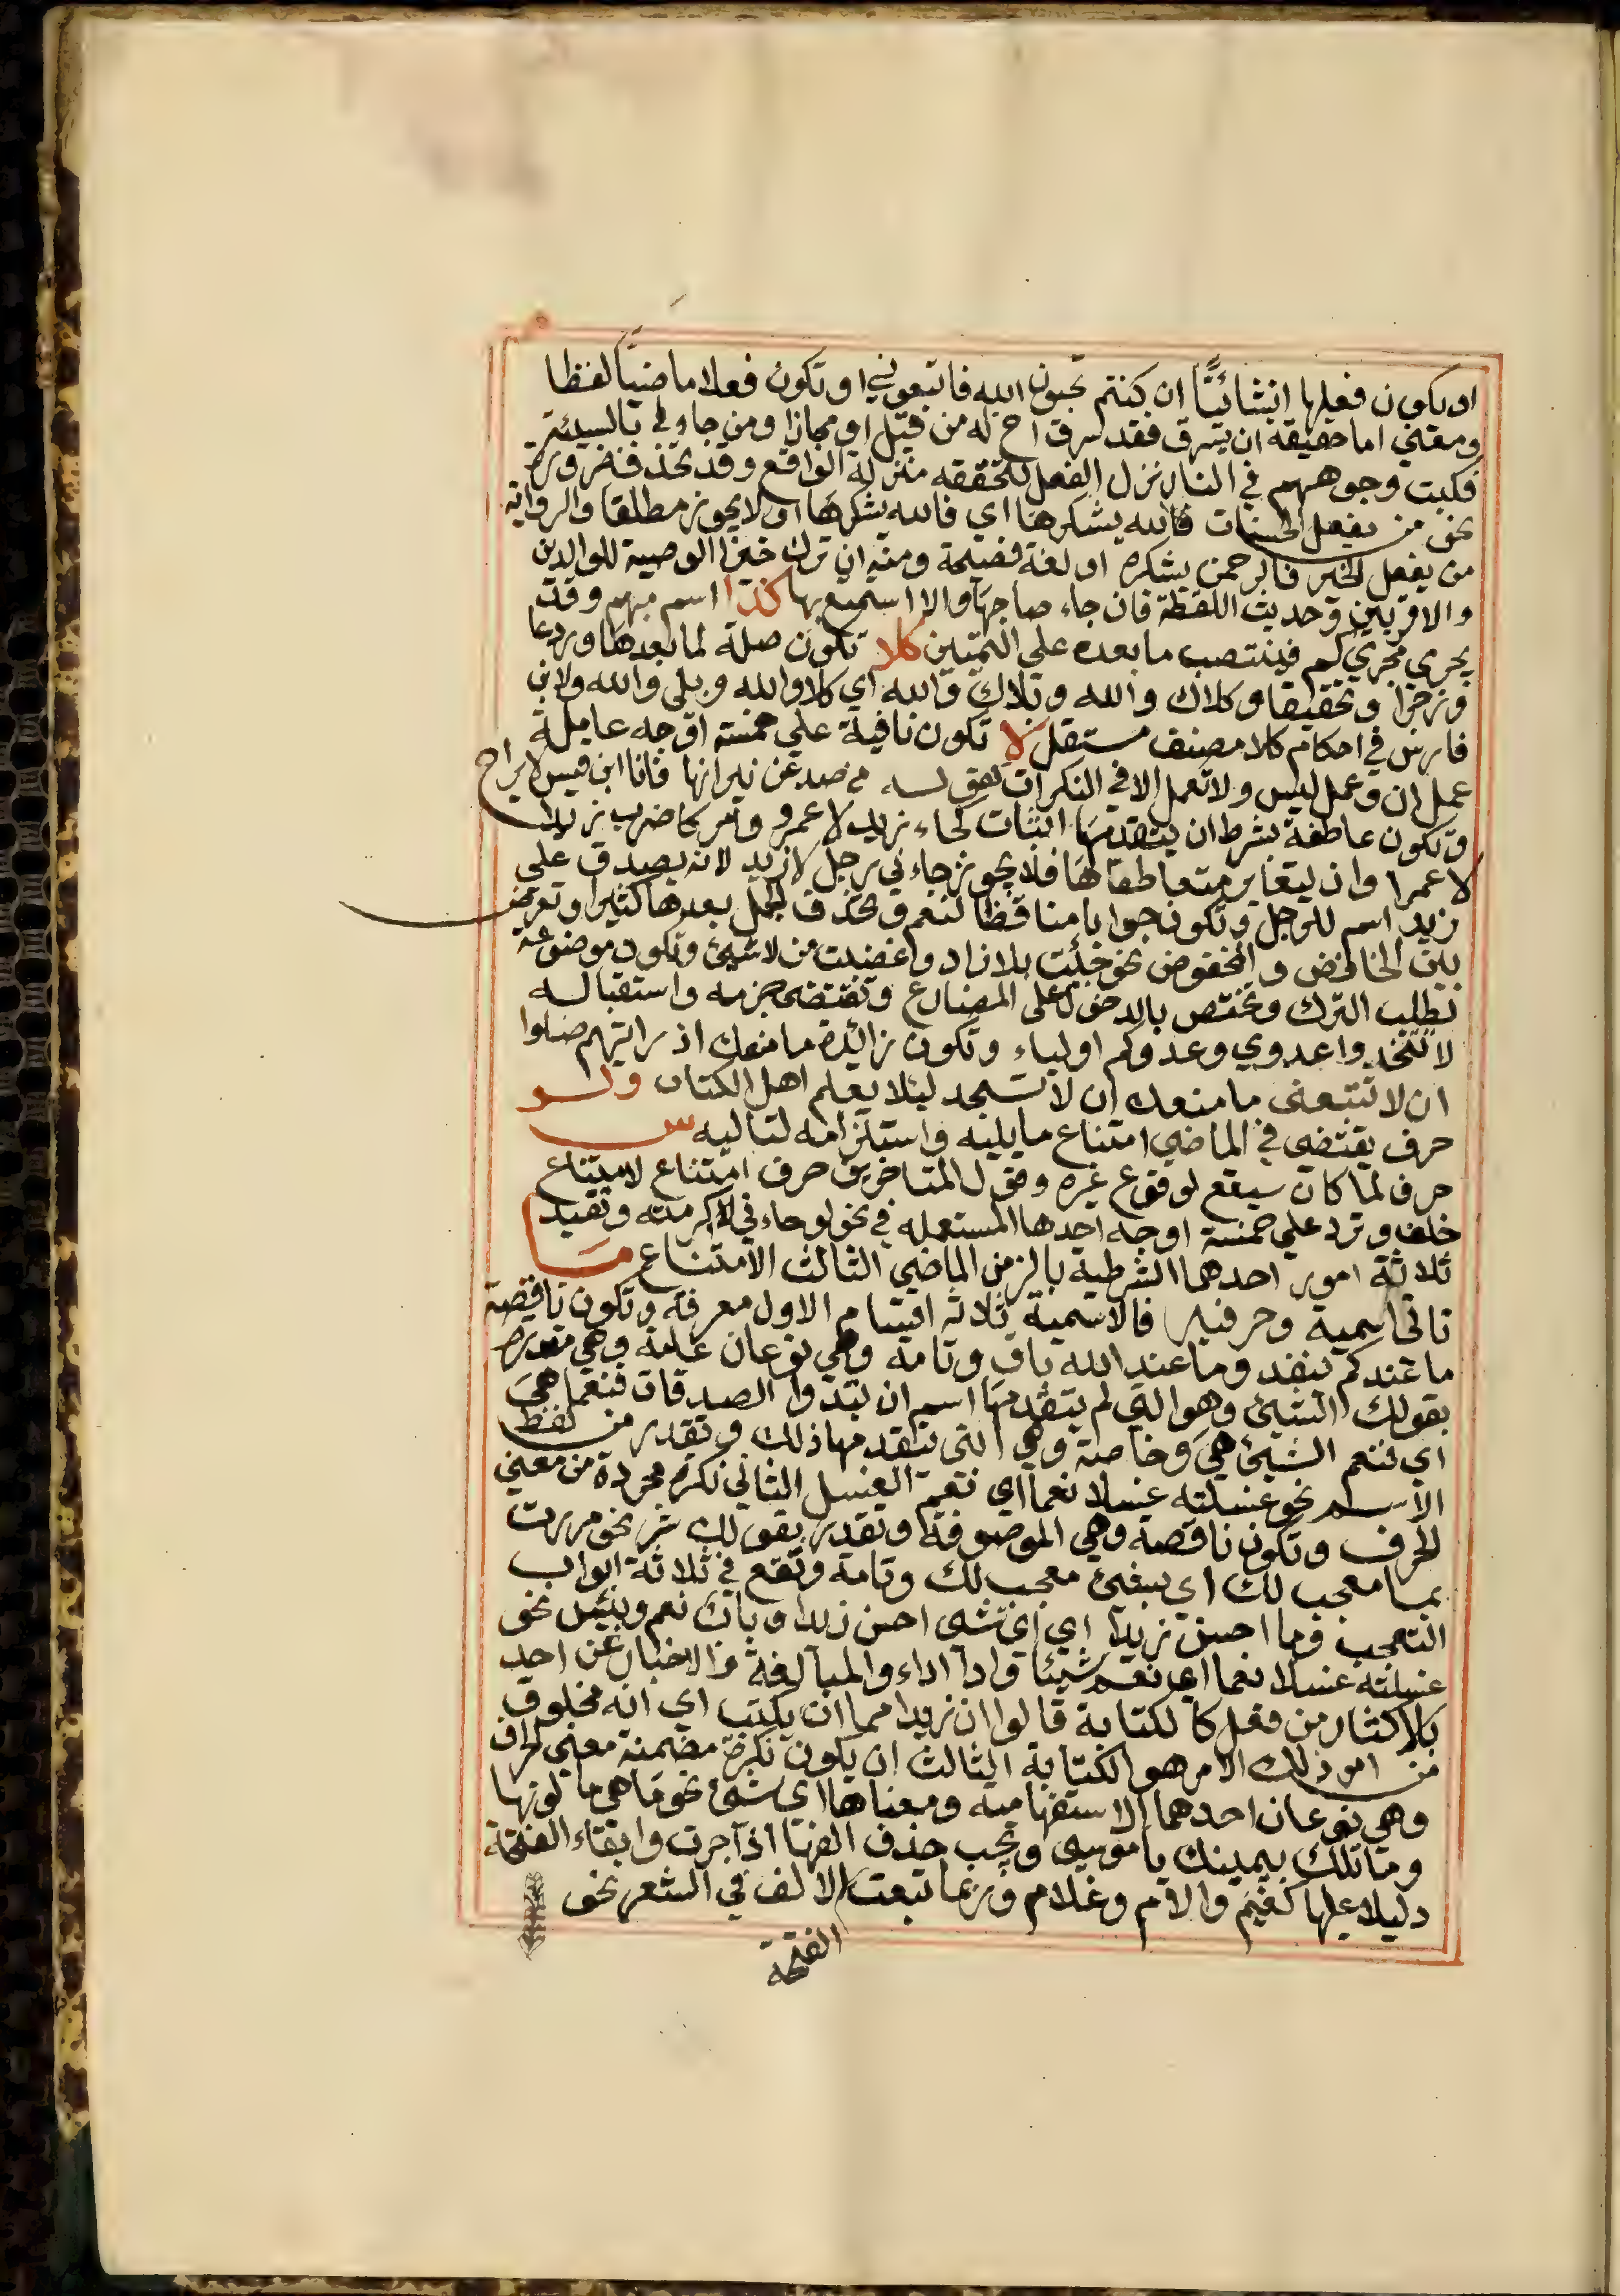 او يكون فعلها انشائيًّا ان كنتم تحبون الله فاتبعوني او تكون فعلا ماضيًا لفظا
ومعني اما حقيقة ان يسرق فقد سرق اخ له من قبل او مجازا ومن جاء بالسيئة
فكبت وجوههم في النار نزل الفعل لتحققه منزلة الواقع وقد تحذف ضرورة
نحو من يفعل الحسنات فالله يشكرها اي فالله يشكرها او لا يجوز مطلقا والرواية
من يفعل الخير فالرحمن يشكره او لغة فصيحة ومنه ان ترك خيرا الوصية للوالدين
والاقربين وحديث اللقطة فان جاء صاحبها والا استمتع بها كذا اسم مبهم وقد
يجري مجري كم فينتصب ما بعده علي التمييز كلا تكون صلة لما بعدها وردعا
وزجرا وتحقيقا وكلاك والله وبلاك والله اي كلا والله وبلى والله ولابن
فارس في احكام كلا مصنف مستقل لا تكون نافية علي خمسة اوجه عاملة
عمل ان وعمل ليس ولا تعمل الا في النكرات كقوله من صد عن نيرانها فانا ابن قيس لا براح
وتكون عاطفة بشرط ان يتقدمها اثبات كجاء زيد لا عمرو وامر كاضرب زيدا
لا عمرا وان يتغاير متعاطفاها فلا يجوز جاءني رجل لا زيد لانه يصدق علي
زيد اسم للرجل وتكون جوابا مناقضا لنعم وتحذف الجمل بعدها كثيرا وتعرض
بين الخافض والمخفوض نحو جئت بلا زاد وغضبت من لا شيئ وتكون موضوعة
لطلب الترك وتختص بالدخول على المضارع وتقتضي جزمه واستقباله
لا تتخذوا عدوي وعدوكم اولياء وتكون زائدة ما منعك اذ رايتهم ضلوا
ان لا تتبعنى ما منعك ان لا تسجد ليئلا يعلم اهل الكتاب ولو
حرف يقتضي في الماضي امتناع ما يليه واستلزامه لتاليه س
حرف لما كان سيقع لوقوع غيره وقول المتاخرين حرف امتناع لامتناع
خلف وترد علي خمسة اوجه احدها المستعمله في نحو لو جاءني لاكرمته وتفيد
ثلاثة امور احدهما الشرطية بالزمن الماضي الثالث الامتناع ما
تاتي اسمية وحرفيه فالاسمية ثلاثه اقسام الاول معرفة وتكون ناقصة
ما عندكم ينفد وما عند الله باق وتامة وهي نوعان عامة وهي مقدرة
بقولك الشيئ وهو التي لم يتقدمها اسم ان تبدوا الصدقات فنعما هي
اي فنعم الشيئ هي وخاصة وهي التي تتقدمها ذلك وتقدر من لفظ
الاسم نحو غسلته غسلا نعما اي نعم الغسل الثاني نكره مجردة من معني
الحرف وتكون ناقصة وهي الموصوفة وتقدر بقولك شئ نحو مررت
بما معجب لك اي بشيئ معجب لك وتامة وتقع في ثلاثة ابواب
التعجب وما احسن زيدا اي اي شئ احسن زيدا وباب نعم وبئس نحو
غسلته غسلا نعما اي نعم شيئا واذا اراد والمبالغة في الاخبار عن احد
بالاكثار من فعل كالكتابة قالوا ان زيدا مما ان يكتب اي انه مخلوق
من امر ذلك الامر هو الكتابة الثالث ان يكون نكرة مضمنة معنى الحرف
وهي نوعان احدهما الاستفهامية ومعناها اي شئ نحو ما هي ما لونها
وما تلك بيمينك يا موسى ويجب حذف الفها اذا جرت وابقاء الفتحة
دليلا عليها كفيم والام وعلام وربما تبعت الالف في الشعر نحو
الفتحة